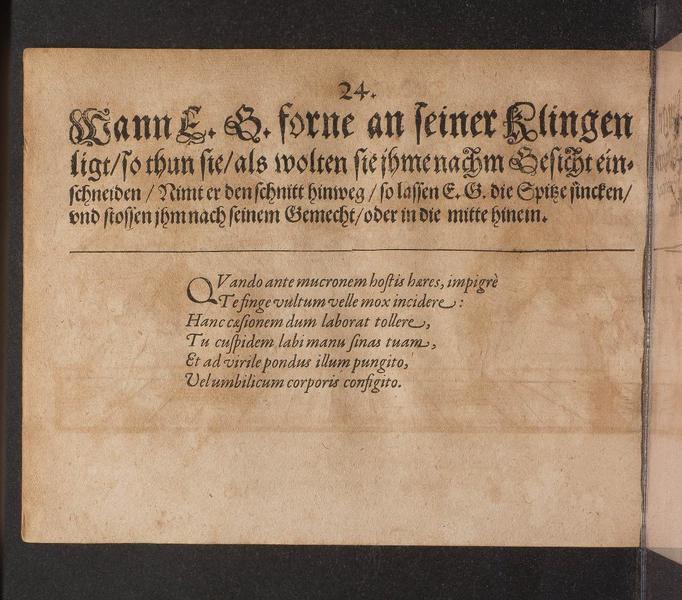 24.
Wann E. G. forne an seiner Klingen
ligt/ so thun sie/ als wolten sie jhme nachm Gesicht ein-
schneiden / Nimt er den schnitt hinweg / so lassen E. G. die Spitze sincken/
vnd stossen jhm nach seinem Gemecht/ oder in die mitte hinein.
QVando ante mucronem hostis hæres, impigrè
Te finge vultum velle mox incidere:
Hanc cæsionem dum laborat tollere,
Tu cuspidem labi manu sinas tuam,
Et ad virile pondus illum pungito,
Vel umbilicum corporis configito.